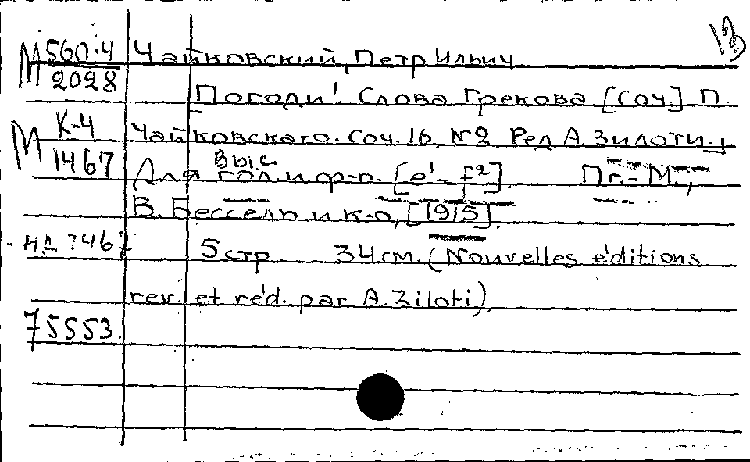 13
М 560-4 Чайковский, Петр Ильич
2028
Погоди! Слова Грекова [Соч.] П.
М К-4 Чайковскаго. Соч. 16, №2 Ред. А. Зилоти.
1467
Для выс. гол. и ф-п. [e'- f²]. Пг.- М.,
В. Бессель и к-о, [1915].
нд 7467 5 стр 34 см. (Nouvelles éditions
rev. et réd. par A. Ziloti).
75553